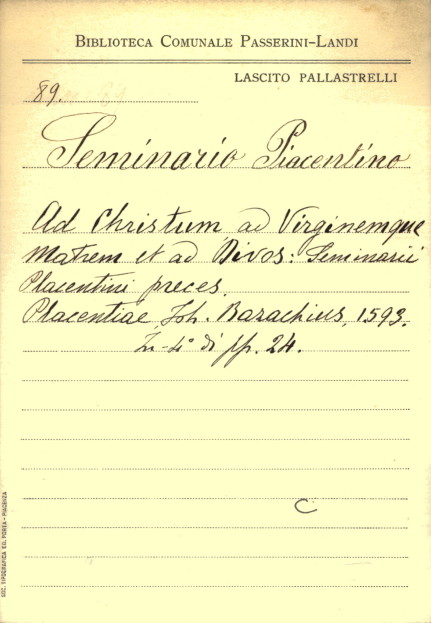 BIBLIOTECA COMUNALE PASSERINI-LANDI
LASCITO PALLASTRELLI
89.
Seminario Piacentino
Ad Christum, ad Virginemque
Matrem et ad Divos: Seminarii
Placentini preces.
Placentiae, Joh. Bazachius, 1593.
In-4° di pp. 24.
C
SOC. TIPOGRAFICA EDIT. PORTA - PIACENZA